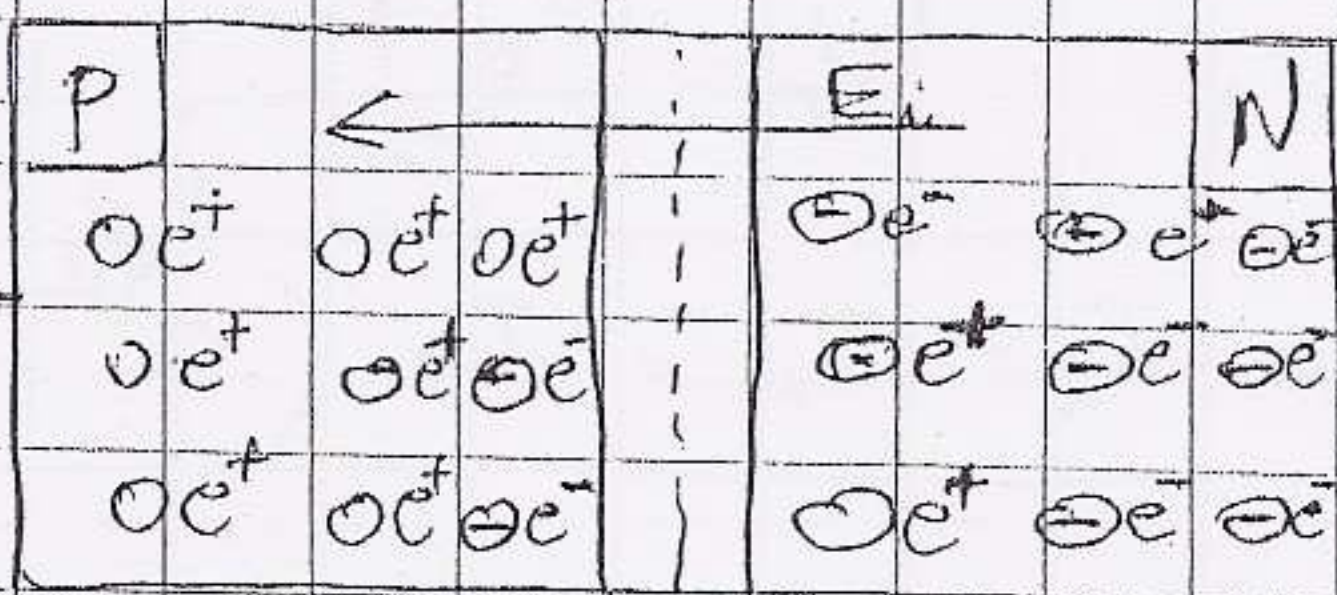 P Ei N
e+ e+ e+ e- e+ e-
e+ e+ e- e+ e- e-
e+ e+ e- e+ e- e-